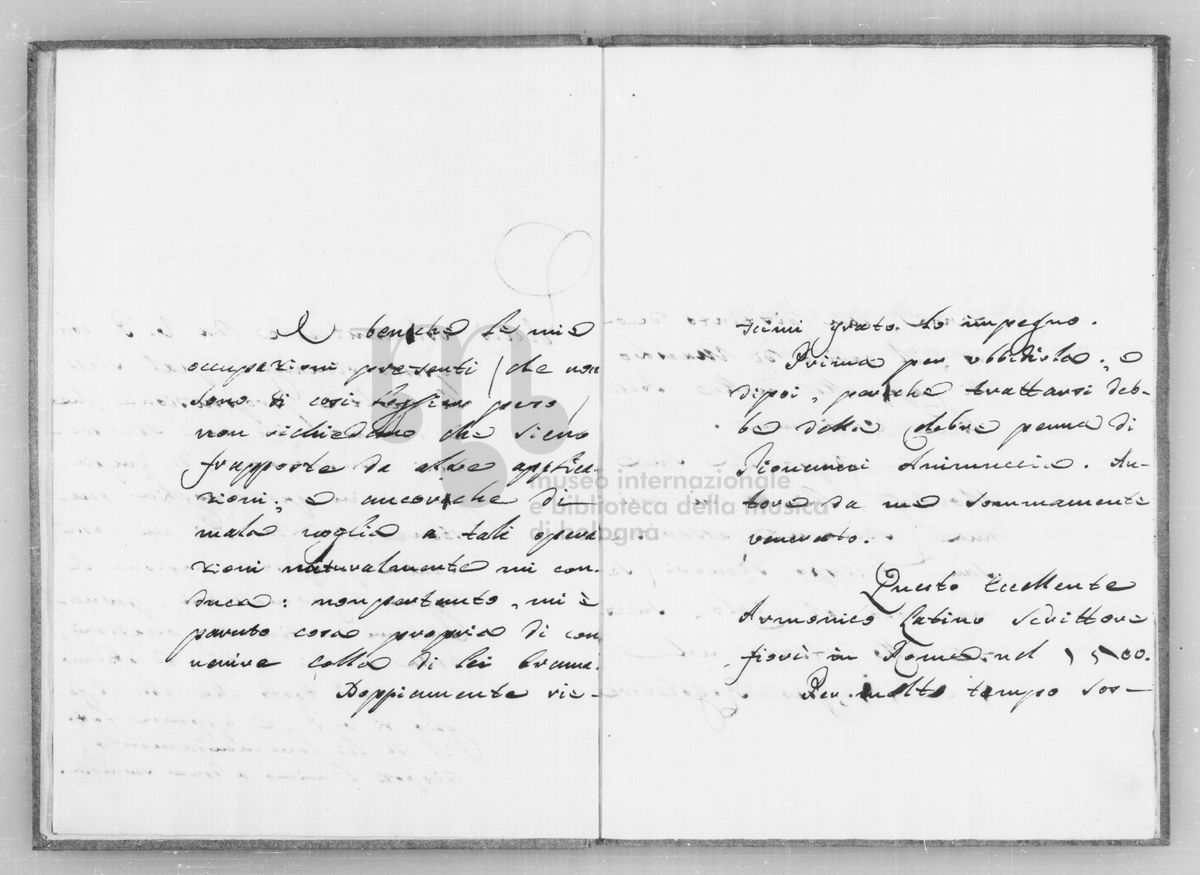 E benche le mie
occupazioni presenti / che non
sono di così leggier peso /
non richiedano che sieno
frapposte da altre applica-
zioni; e ancorche di
mala voglia a tali opera
zioni naturalmente mi con-
duca: nonpertanto, mi è
paruto cosa propria di con
venire colla di lei brama.
Doppiamente rie-
scimi grato lo impegno.
Prima per ubbidirla; e
dipoi, perche trattarsi deb-
be della celebre penna di
Giovanni Animuccia. Au-
tore da me sommamente
venerato.
Questo Eccellente
Armonico Latino Scrittore
fiorì in Roma nel 1500.
Per molto tempo sos-
museo internazionale
e biblioteca della musica
di bologna